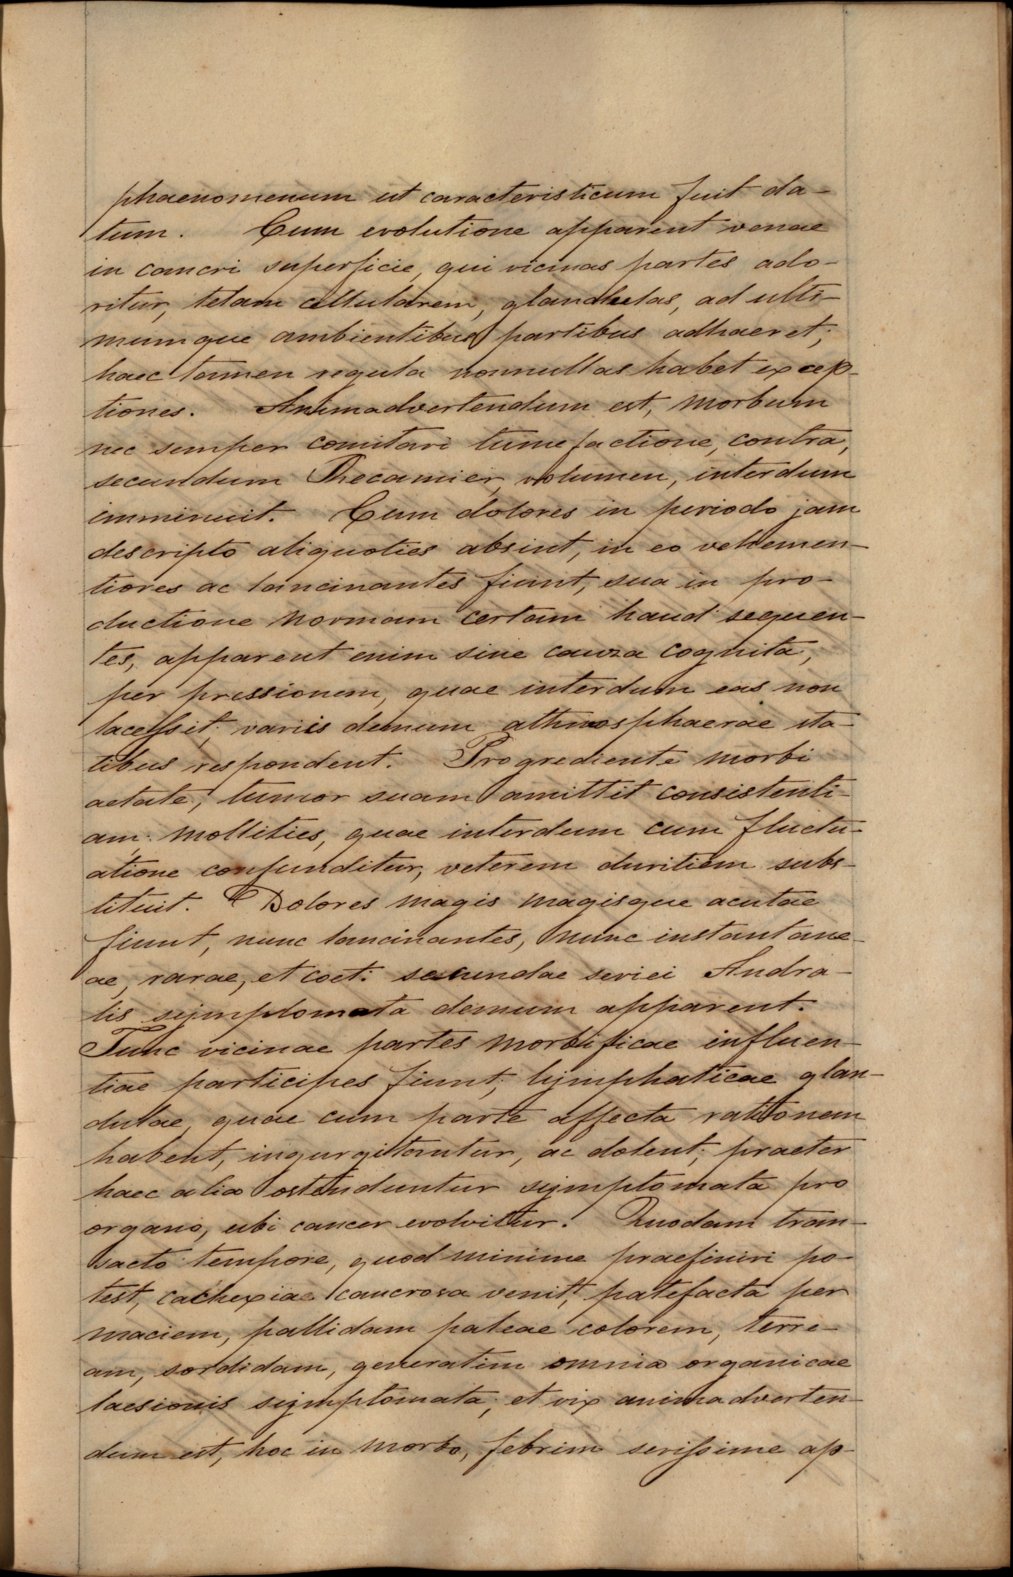 phaenomenum ut caracteristicum fuit da-
tum. Cum evolutione apparent venae
in cancri superficie, qui vicinas partes ado-
ritur, telam cellularem, glandulas, ad ulti-
mumque ambientibus partibus adhaeret;
haec tamen regula nonnullas habet excep-
tiones. Animadvertendum est, morbum
nec semper comitari tumefactione, contra,
secundum Recamier, volumen, interdum
imminuit. Cum dolores in periodo jam
descripto aliquoties absint, in eo vehemen-
tiores ac lancinantes fiunt, sua in pro-
ductione normam certam haud sequen-
tes, apparent enim sine causa cognita,
per pressionem, quae interdum eas non
lacessit; variis demum athmosphaerae sta-
tibus respondent. Progrediente morbi
aetate, tumor suam amittit consistenti-
am: mollities, quae interdum cum fluctu-
atione confunditur, veterem duritiem subs-
tituit. Dolores magis magisque acutae
fiunt, nunc lancinantes, nunc instantane-
ae, rarae, et coet: secundae seriei Andra-
lis symptomata demum apparent.
Tunc vicinae partes morbificae influen-
tiae participes fiunt; lymphaticae glan-
dulae, quae cum parte affecta rationem
habent, ingurgitantur, ac dolent; praeter
haec alia ostenduntur symptomata pro
organo, ubi cancer evolvitur. Quodam tran-
sacto tempore, quod minime praefiniri po-
test, cachexiae cancrosa venit, patefacta per
maciem, pallidam paleae colorem, terre-
am, sordidam, generatim omnia organicae
laesionis symptomata; et vix animadverten-
dum est, hoc in morbo, febrim serissime ap-